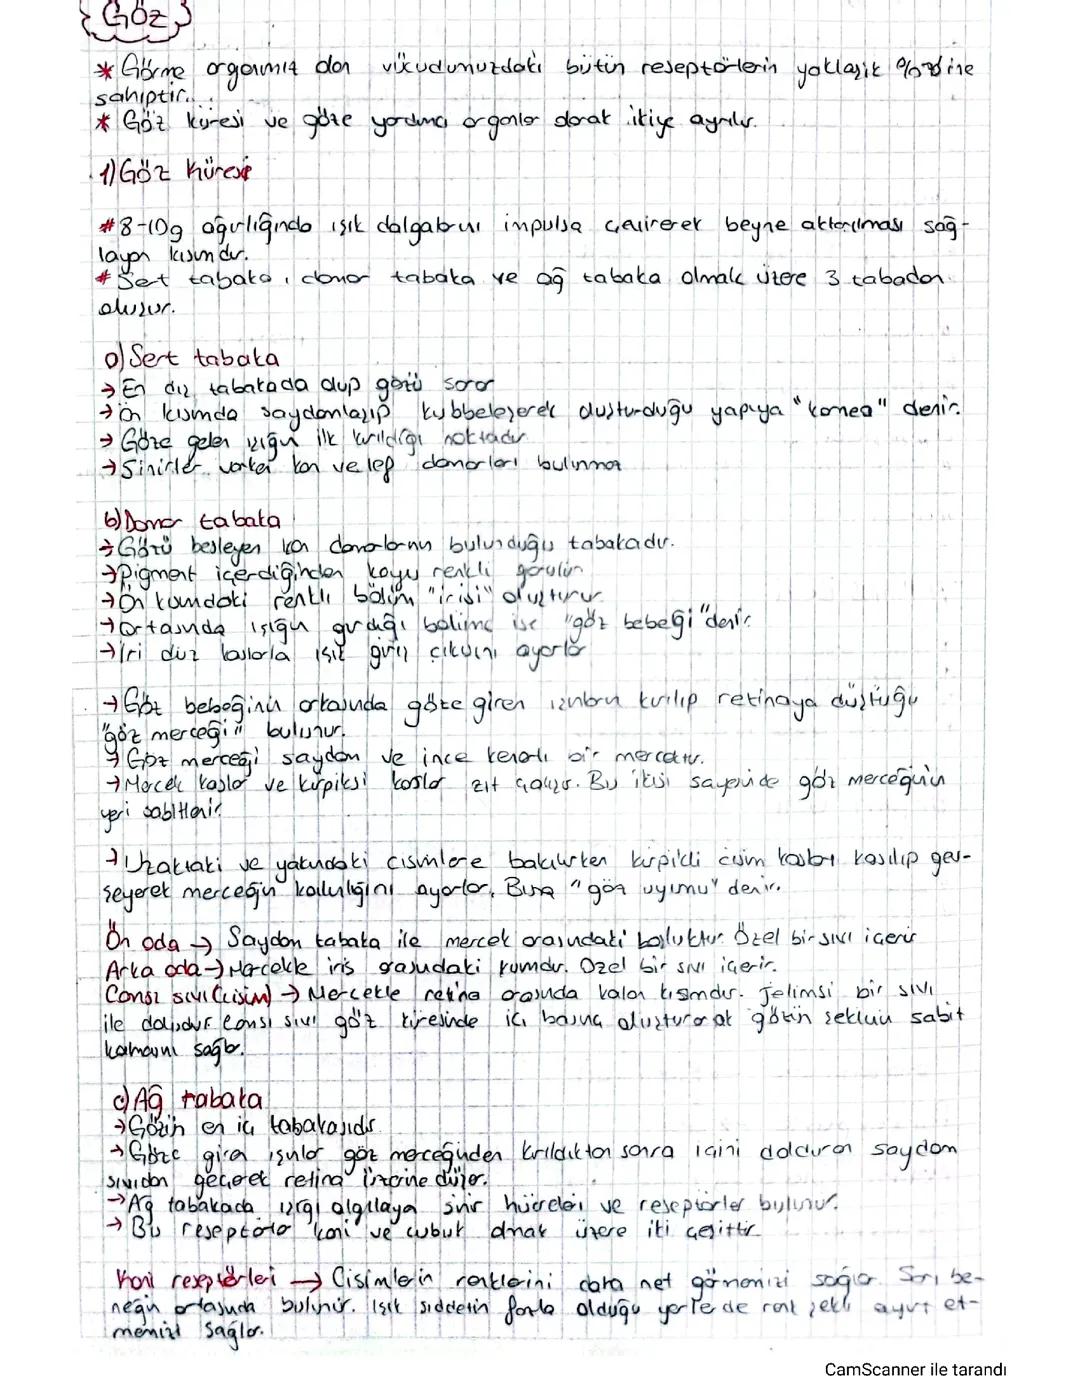 Göz
* Görme organımız olan vücudumuzdaki bütün reseptörlerin yaklaşık
sahiptir.
* Göz küresi ve göze yardımcı organlar olarak ikiye ayrılır.
1) Göz küresi
# 8-10g ağırlığında ışık dalgalarını impulsa çevirerek beyne aktarılması sağ-
layan kısımdır.
# Sert tabaka, damar tabaka ve ağ tabaka olmak üzere 3 tabadan
oluşur.
a) Sert tabaka
→ En dış tabakada olup gözü sarar
→ Ön kısımda saydamlaşıp kubbeleşerek oluşturduğu yapıya "kornea" denir.
→ Göze gelen ışığın ilk kırıldığı noktadır
→ Sinirler varken kan ve lenf damarları bulunmaz
b) Damar tabaka
→ Gözü besleyen kan damarlarının bulunduğu tabakadır.
→ Pigment içerdiğinden koyu renkli görülür
→ Ön kısımdaki renkli bölüm "irisi" oluşturur
→ Ortasında ışığın girdiği bölüme ise "göz bebeği" denir.
→ İri düz kaslarla ışık giriş çıkışını ayarlar
→ Göz bebeğinin arkasında göze giren ışınların kırılıp retinaya düştüğü
"göz merceği" bulunur.
→ Göz merceği saydam ve ince kenarlı bir mercektir.
→ Mercek kaslar ve kirpiksi kaslar zıt çalışır. Bu ikisi sayesinde göz merceğinin
yeri sabitlenir
→ Uzaktaki ve yakındaki cisimlere bakılırken kirpikli cisim kasları kasılıp gev-
şeyerek merceğin kalınlığını ayarlar. Buna "göz uyumu" denir.
Ön oda → Saydam tabaka ile mercek arasındaki boşluktur. Özel bir sıvı içerir
Arka oda → Mercekle iris arasındaki kısımdır. Özel bir sıvı içerir.
Camsı sıvı (cisim) → Mercekle retina arasında kalan kısımdır. Jelimsi bir sıvı
ile doludur. Camsı sıvı göz küresinde iç basınç oluşturarak gözün şeklinin sabit
kalmasını sağlar.
c) Ağ tabaka
→ Gözün en iç tabakasıdır.
→ Göze giren ışınlar göz merceğinden kırıldıktan sonra içini dolduran saydam
sıvıdan geçerek retina üzerine düşer.
→ Ağ tabakada ışığı algılayan sinir hücreleri ve reseptörler bulunur.
→ Bu reseptörler koni ve çubuk olmak üzere iki çeşittir.
Koni reseptörleri → Cisimlerin renklerini daha net görmemizi sağlar. Sarı be-
neğin ortasında bulunur. Işık şiddetin fazla olduğu yerlerde renk şekli ayırt et-
memizi sağlar.
CamScanner ile tarandı